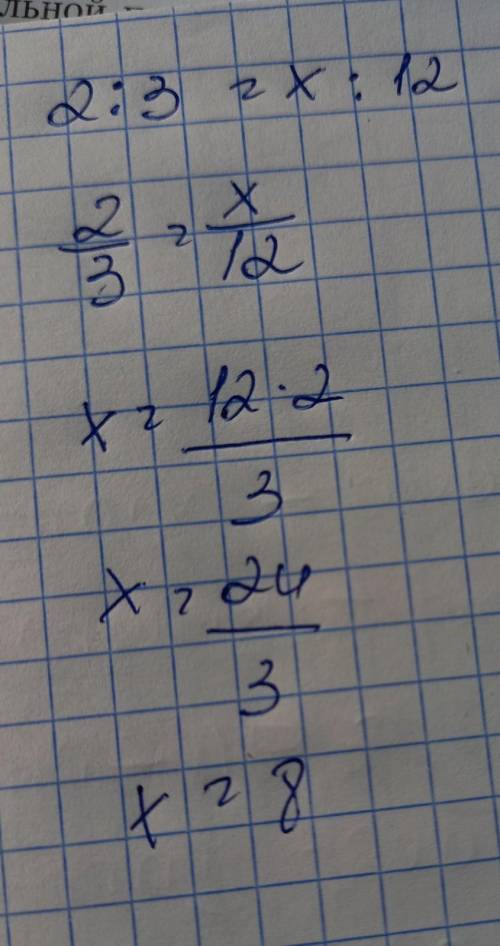 льной
2:3 = x : 12
2/3 = x/12
x = 12·2/3
x = 24/3
x = 8